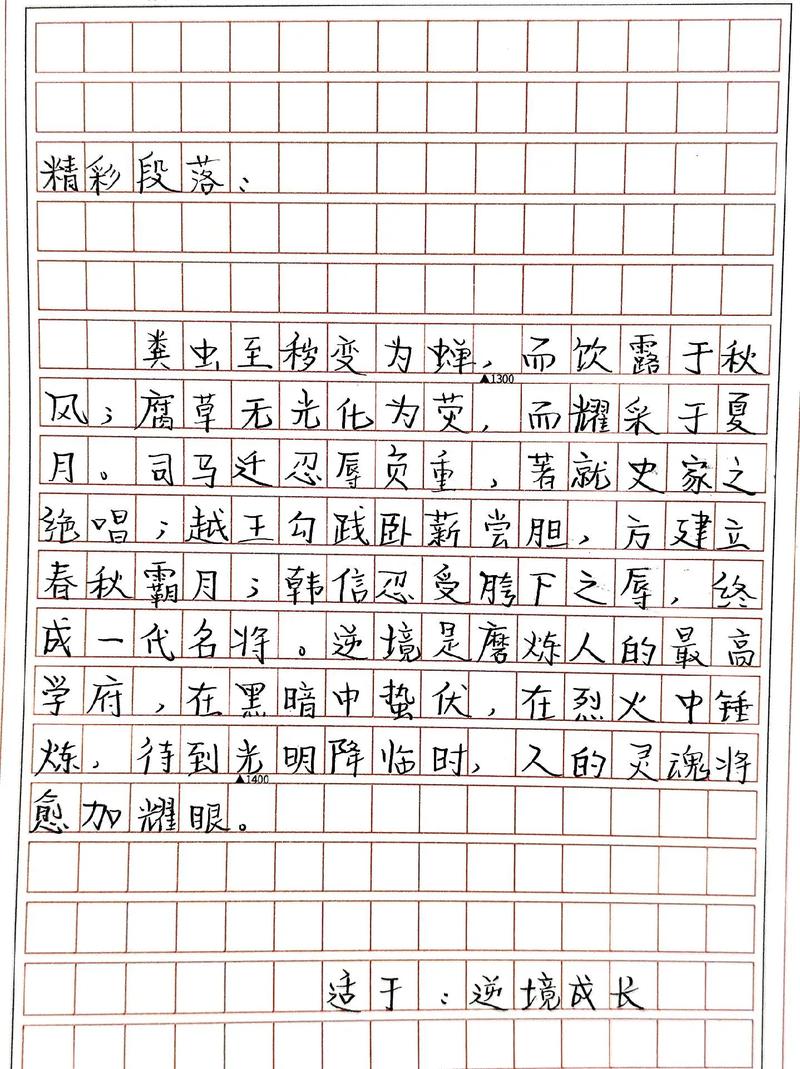 精彩段落：
粪虫至秽变为蝉，而饮露于秋
▲1300
风；腐草无光化为荧，而耀采于夏
月。司马迁忍辱负重，著就史家之
绝唱；越王勾践卧薪尝胆，方建立
春秋霸月；韩信忍受胯下之辱，终
成一代名将。逆境是磨炼人的最高
学府，在黑暗中蛰伏，在烈火中锤
炼，待到光明降临时，人的灵魂将
▲1400
愈加耀眼。
适于：逆境成长